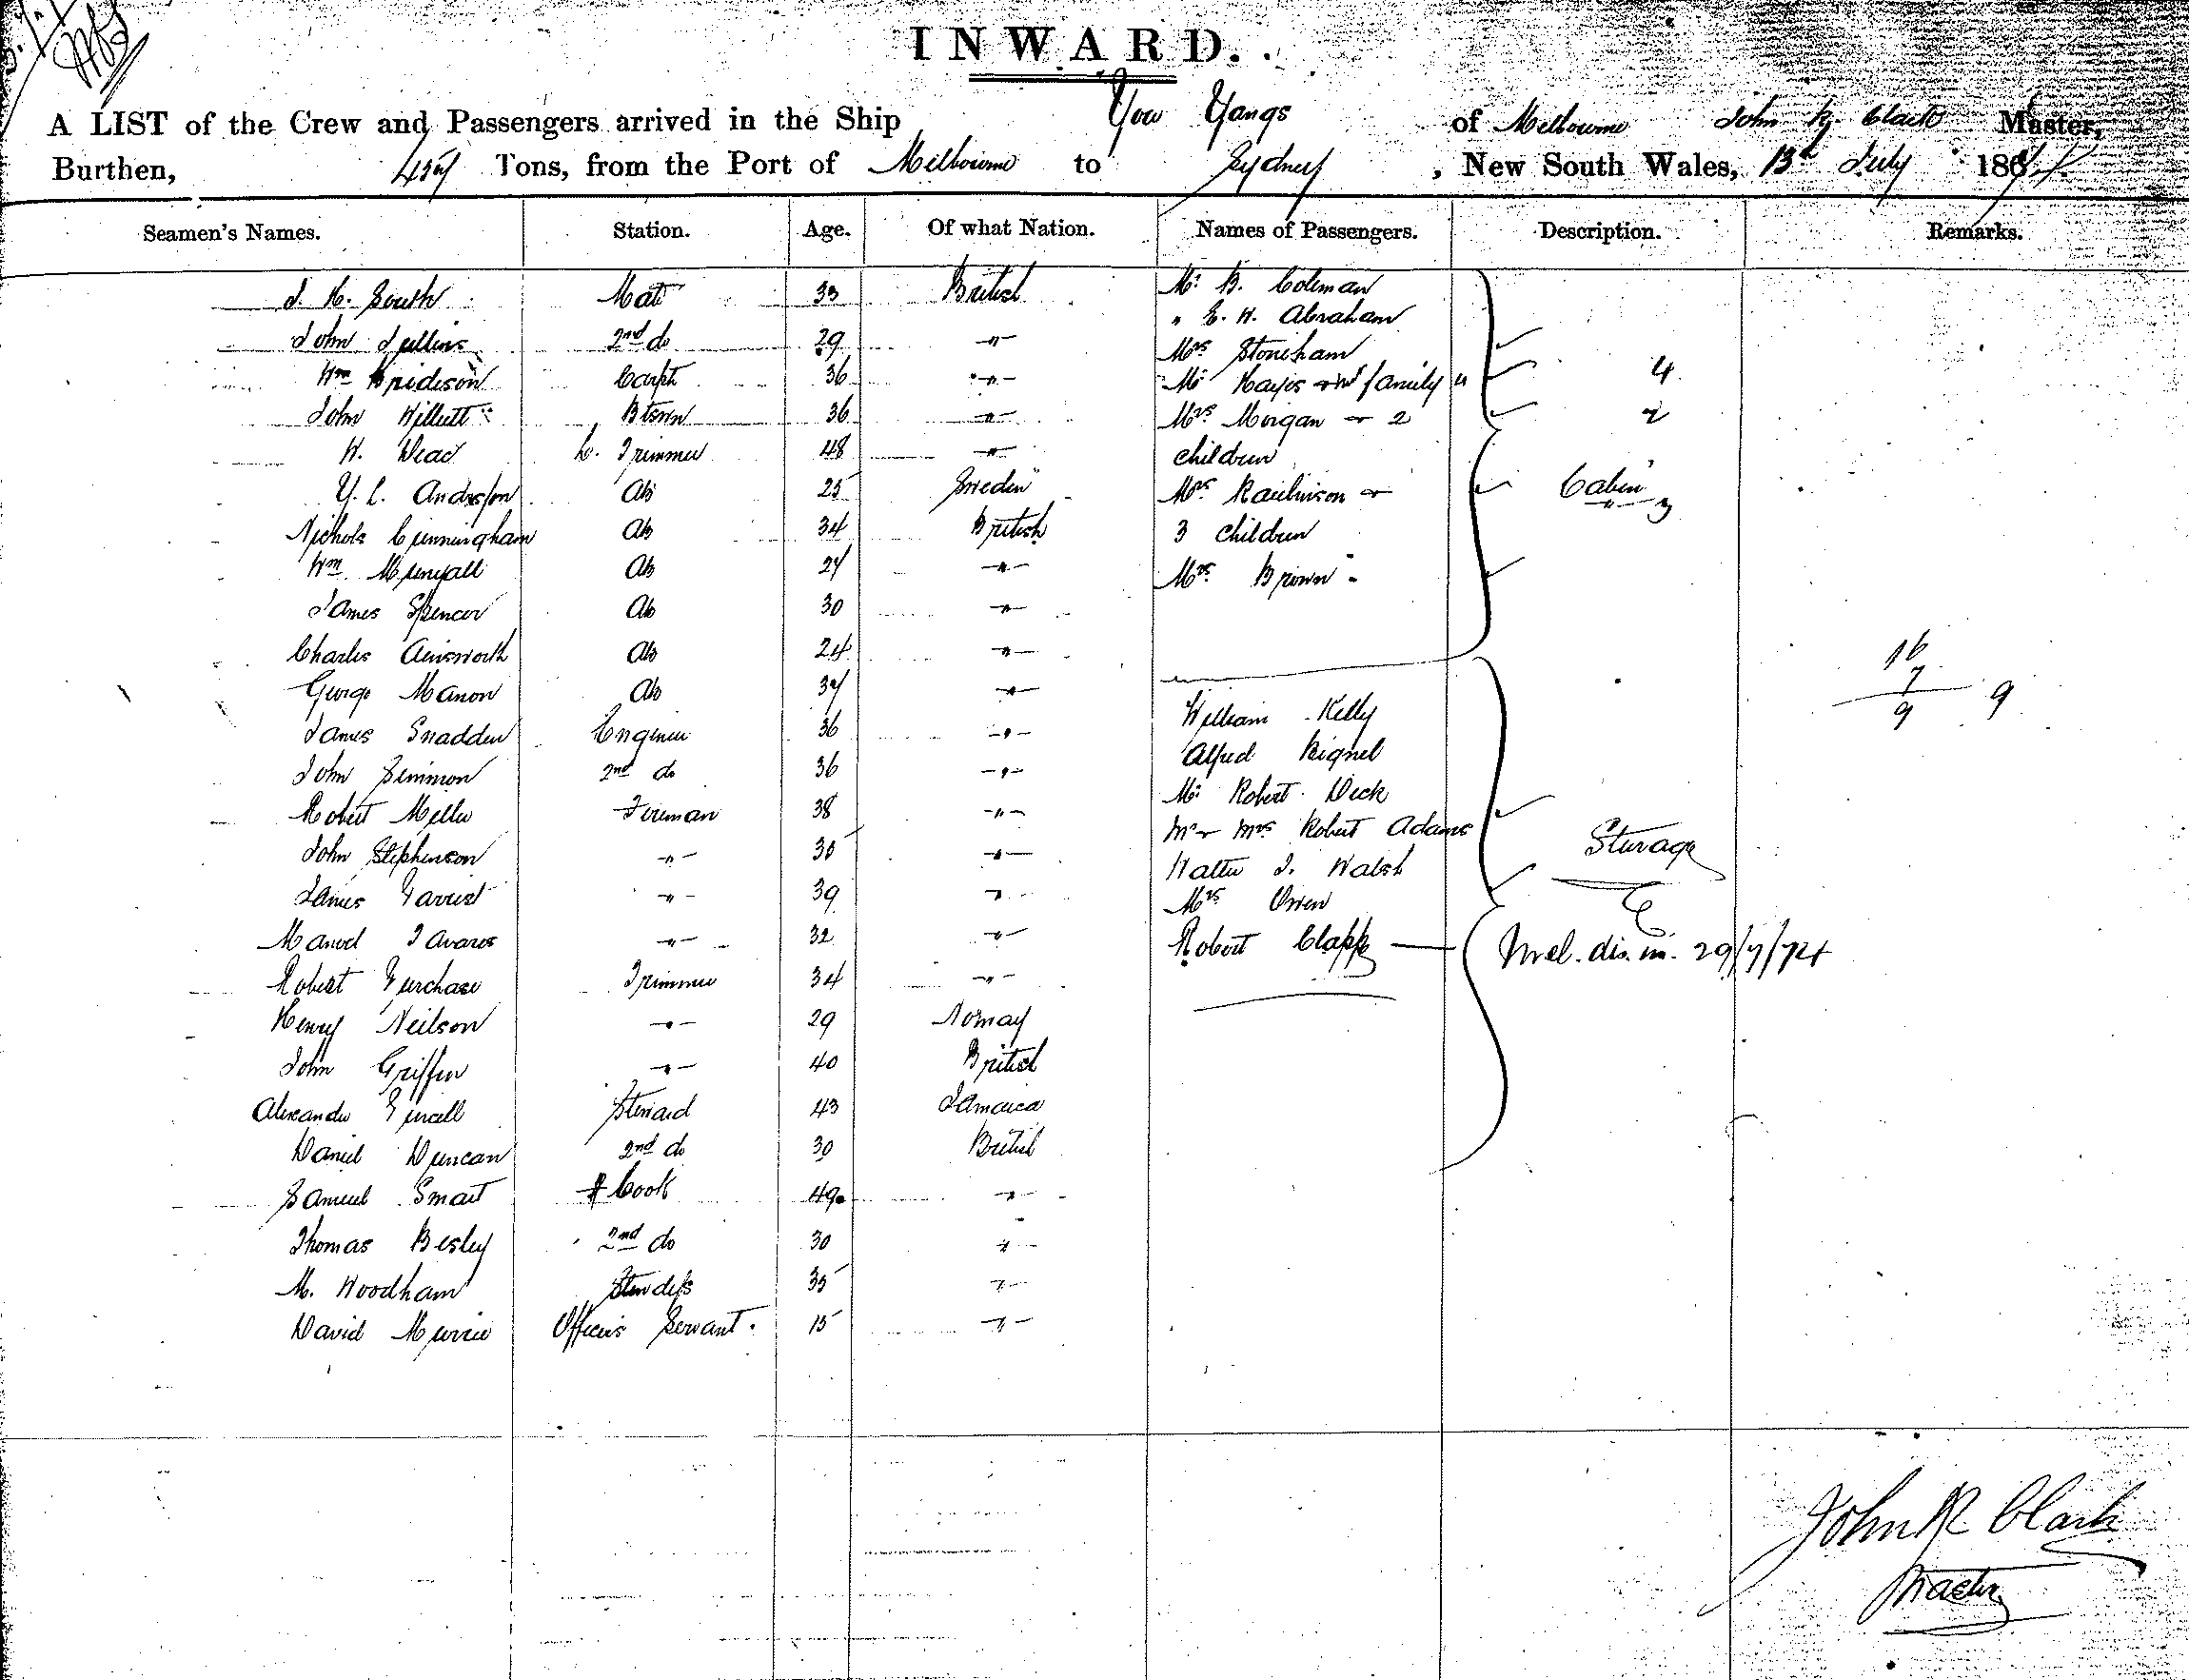 INWARD.
A LIST of the Crew and Passengers arrived in the Ship You Yangs of Melbourne John R. Clark Master,
Burthen, 457 Tons, from the Port of Melbourne to Sydney, New South Wales, 13th July 1874
Seamen's Names. Station. Age. Of what Nation. Names of Passengers. Description. Remarks.
J. H. South Mate 33 British Mr. B. Coleman
" E. H. Abraham
John 2nd do 29 -"- Mrs Stoneham
Wm Carpt 36 -"- Mr Hayes and family 4 4
John Willett Btswn 36 -"- Mrs Morgan + 2 2
W. Dead L. Trimmer 48 -"- children
Y. L. Anderson Ab 25 Sweden Mrs Rawlinson + Cabin
Nichols Cunningham Ab 34 British 3 children -"- 3
Wm Ab 27 -"- Mrs Brown
James Spencer Ab 30 -"-
Charles Ainsworth Ab 24 -"- 16
George Manon Ab 37 -"- 7
James Snadden Engineer 36 -"- William Kelly 9 9
John Simmon 2nd do 36 -"- Alfred Bignel
Robert Miller Fireman 38 -"- Mr Robert Deck
John Stephenson -"- 30 -"- Mr + Mrs Robert Adams Sturage
James -"- 39 -"- Walter J. Walsh
Manoel Tavares -"- 32 -"- Mrs Owen
Robert Purchase Trimmer 34 -"- Robert Clapp Mel. dis. in. 29/7/74
Henry Neilson -"- 29 Norway
John Griffin -"- 40 British
Alexander Steward 43 Jamaica
Daniel Duncan 2nd do 30 British
Samuel Smart Cook 49 -"-
Thomas Besley 2nd do 30 -"-
M. Woodham Stewdess 35 -"-
David Murrie Officers Servant. 15 -"-
John R Clark
Master